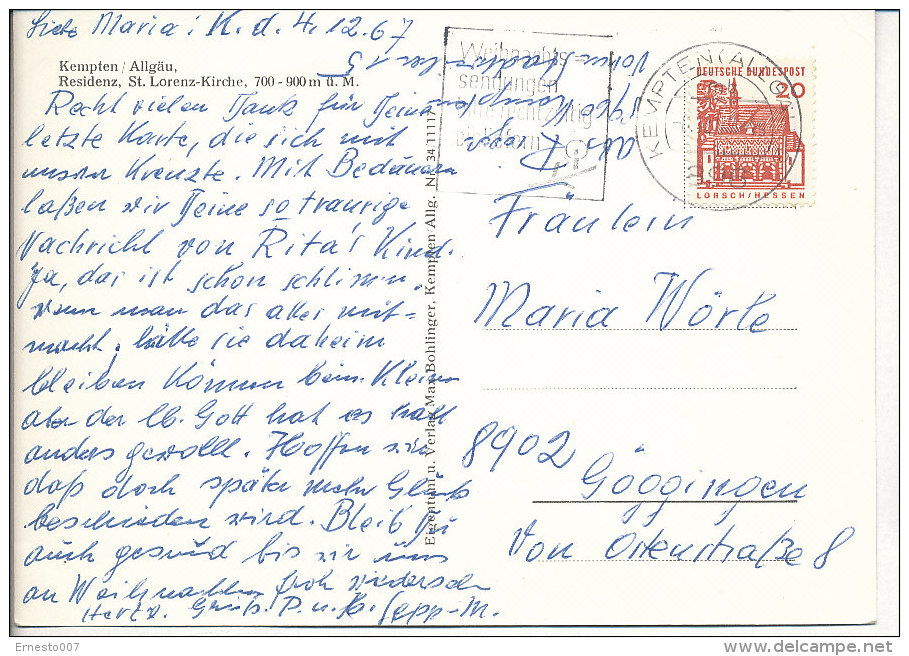 Liebe Maria! K. d. 4.12.67
Kempten / Allgäu,
Residenz, St. Lorenz-Kirche, 700 - 900 m ü. M.
Recht vielen Dank für Deine
letzte Karte, die sich mit
unsrer Kreuzte. Mit Bedauern
laßen wir Deine so traurige
Nachricht von Rita's Kind.
Ja, das ist schon schlimm,
wenn man das alles mit=
macht, hätte sie daheim
bleiben können beim Kleinen
aber der lb. Gott hat es halt
anders gewollt. Hoffen wir
daß doch später mehr Glück
beschieden wird. Bleib Du
auch gesund bis wir uns
an Weihnachten froh wiedersehn
Herzl. Grüße P. u. Sepp-M.
Eigentum u. Verlag Max Bohlinger, Kempten/Allg. Nr. 34 11117
Weihnachts-
sendungen
bitte rechtzeitig
einliefern
KEMPTEN (ALLGÄU)
DEUTSCHE BUNDESPOST
20
LORSCH/HESSEN
Fräulein
Maria Wörle
8902
Göggingen
Von Ostenstraße 8
Ernesto007
delcampe.net